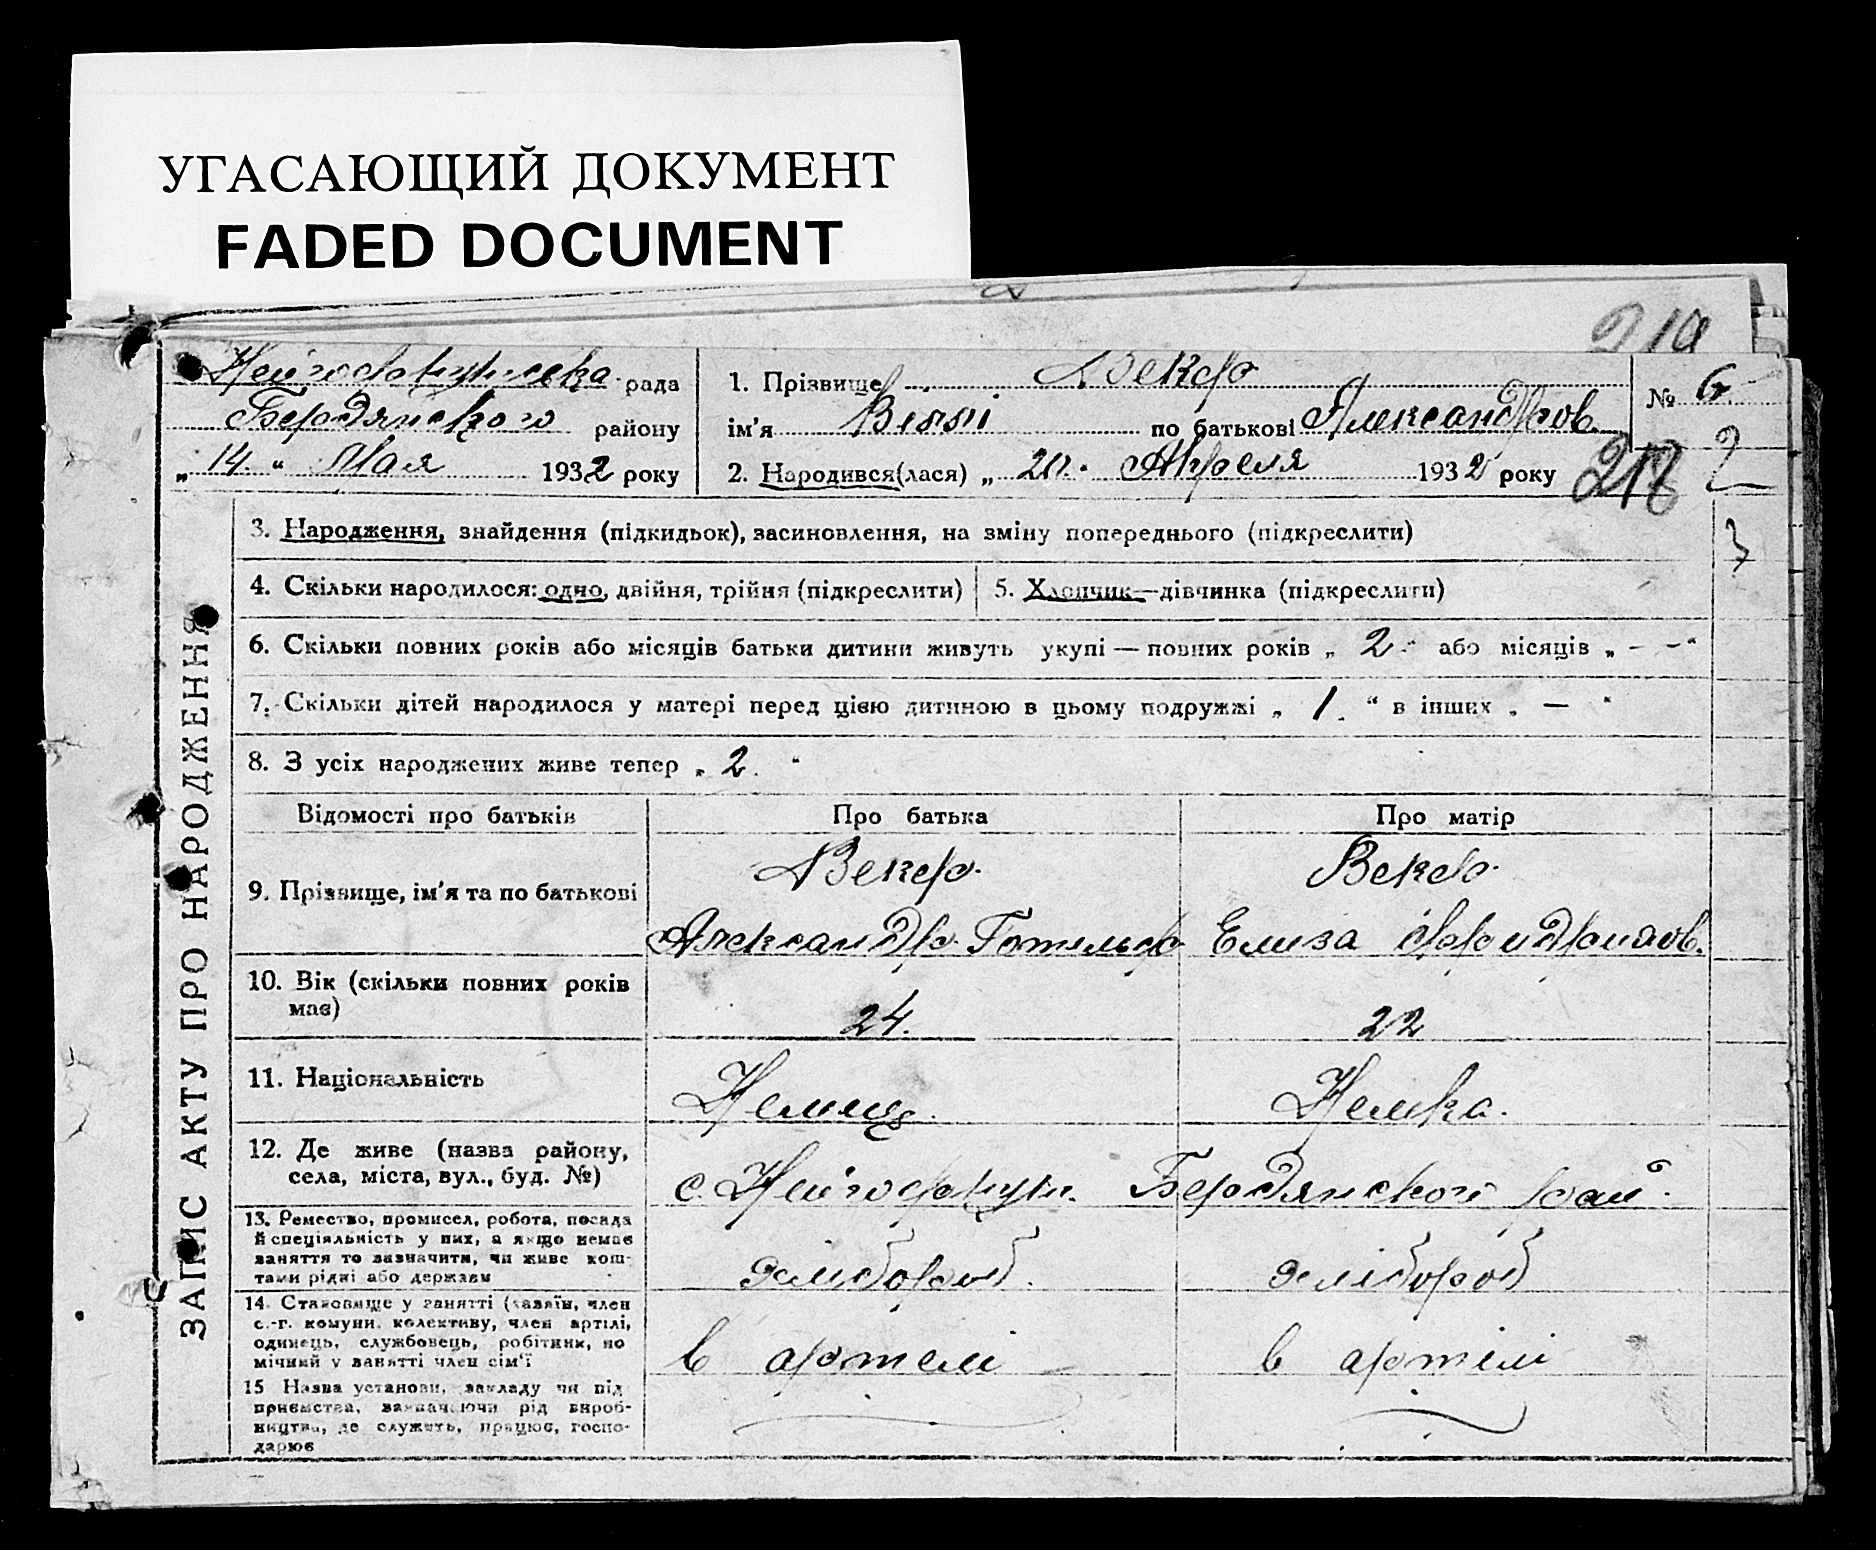 УГАСАЮЩИЙ ДОКУМЕНТ
FADED DOCUMENT
219
рада
Бердянского району
„ 14. “ Мая 1932 року
1. Прізвище Векер
ім'я Віллі по батькові Александров.
2. Народився(лася) „ 20. “ Апреля 1932 року
№ 6
218
2
3
ЗАПИС АКТУ ПРО НАРОДЖЕННЯ
3. Народження, знайдення (підкидьок), засиновлення, на зміну попереднього (підкреслити)
4. Скільки народилося: одно, двійня, трійня (підкреслити)
5. Хлопчик—дівчинка (підкреслити)
6. Скільки повних років або місяців батьки дитини живуть укупі — повних років „ 2 “ або місяців „ - - “
7. Скільки дітей народилося у матері перед цією дитиною в цьому подружжі „ 1. “ в інших „ — “
8. З усіх народжених живе тепер „ 2. “
Відомості про батьків
Про батька
Про матір
9. Прізвище, ім'я та по батькові
Векер.
Александр
Векер.
Елиза
10. Вік (скільки повних років
має)
24.
22
11. Національність
Немец.
Немка.
12. Де живе (назва району,
села, міста, вул., буд. №)
с. Бердянского рай.
13. Ремество, промисел, робота, посада
й спеціяльність у них, а якщо немає
заняття то зазначити, чи живе кош-
тами рідні або держави
хлібороб.
хлібороб
14. Становище у занятті (хазяїн, член
с.-г. комуни, колективу, член артілі,
одинець, службовець, робітник, по
мічний у занятті член сім'ї
в артелі
в артілі
15 Назва установи, закладу чи під
приємства, зазначаючи рід вироб-
ництва, де служить, працює, госпо-
дарює